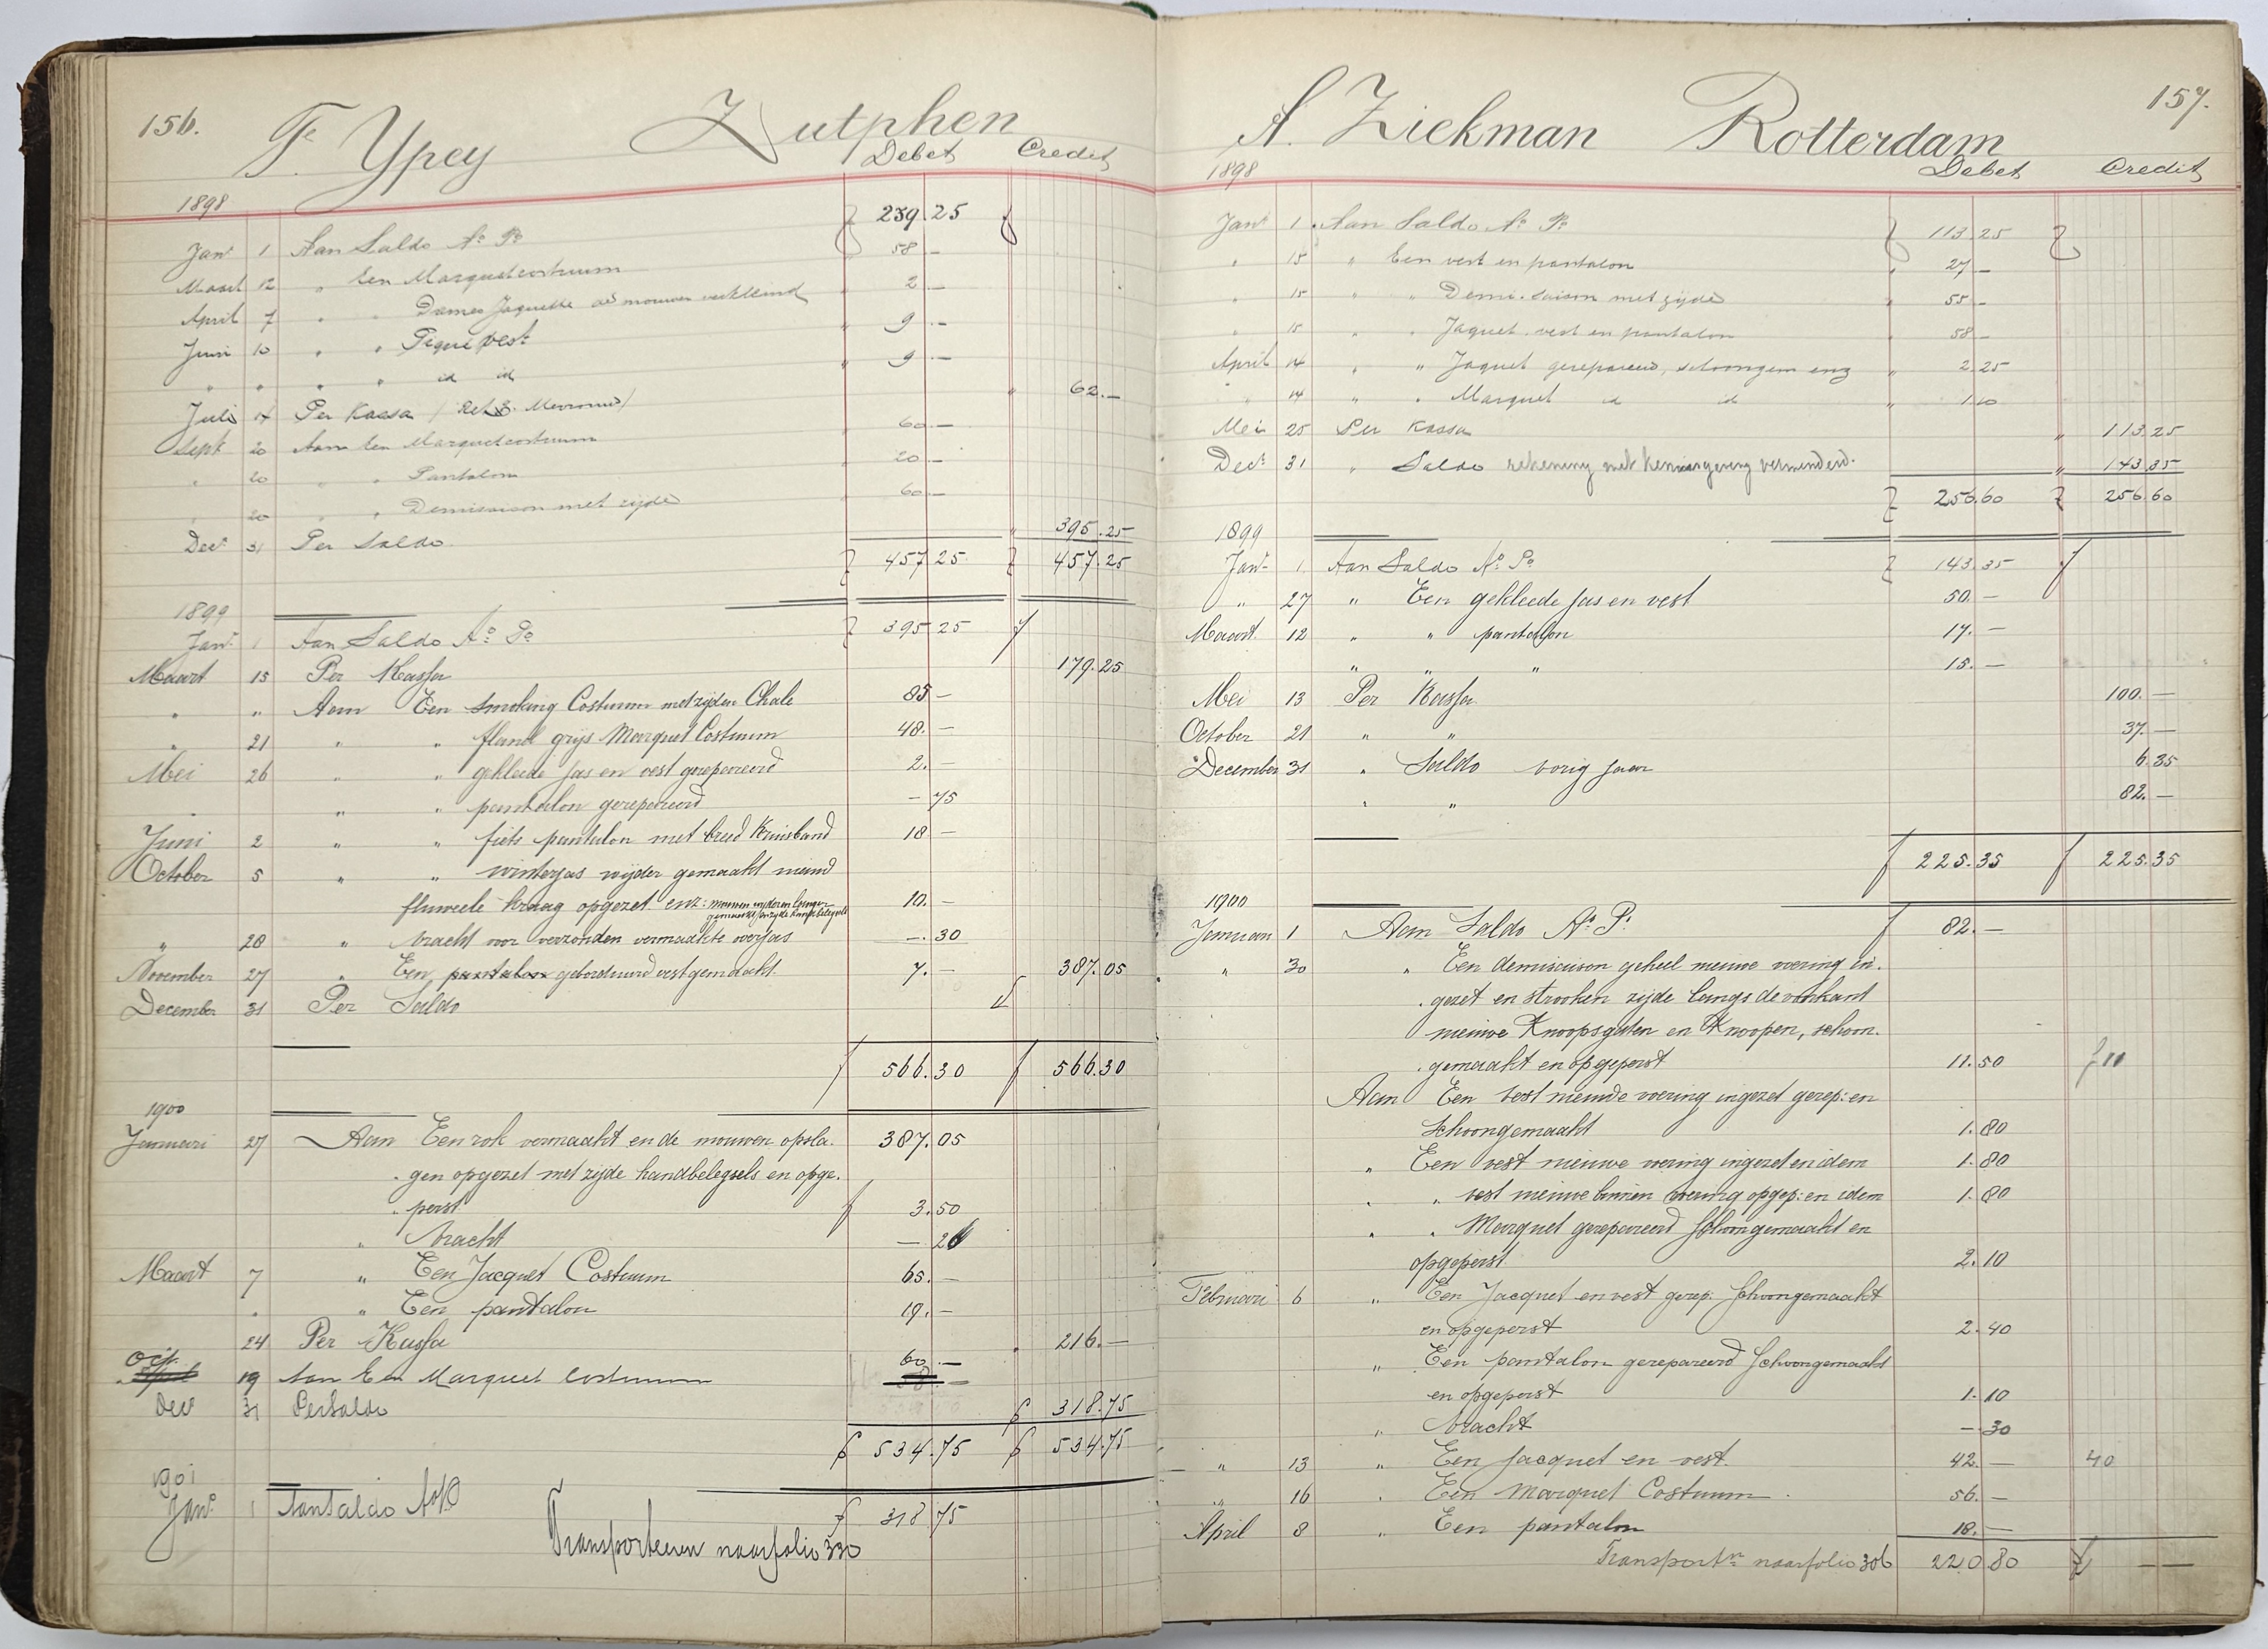 156.
Fe. Ypey Zutphen
Debet Credit
1898
Jan. 1 Aan Saldo Ao Po f 239.25 f
Maart 12 " Een Marquetcostuum 58 —
April 7 " " Dames Jaquette de mouwen verkleind " 2 —
Juni 10 " " Piqué vest " 9 —
" " " " id id " 9 —
Juli 14 Per Kassa / Mevrouw / " 62.—
Sept 20 Aan Een Marquetcostuum 60 —
" 20 " " Pantalon 20 —
" 20 " " Demisaison met zijde 60 —
Decr 31 Per Saldo " 395.25
f 457.25 f 457.25
1899
Jan. 1 Aan Saldo Ao Po f 395 25 f
Maart 15 Per Kassa 179.25
" " Aan Een Smoking Costuum met zijden Chale 85 —
" 21 " " flanel grijs Marquet Costuum 48.—
Mei 26 " " gekleede jas en vest gerepareerd 2.—
" " " pantalon gerepareerd — 75
Juni 2 " " fiets pantalon met breed Kruisband 18 —
October 5 " " winterjas wijder gemaakt nieuw
fluweele kraag opgezet enz: mouwen wijder en langer
gemaakt 10.—
" 20 " Vracht voor verzonden vermaakte overjas —.30
November 27 " Een pantalon geborduurd vest gemaakt. 7.— 387.05
December 31 Per Saldo
f 566.30 f 566.30
1900
Januari 27 Aan Een rok vermaakt en de mouwen opsla- 387.05
-gen opgezet met zijde handbelegsels en opge-
-perst f 3.50
" Vracht
Maart 7 " Een Jacquet Costuum 65.—
" " Een pantalon 19.—
24 Per Kassa 216.—
Oct. April 19 Aan Een Marquet Costuum 60.—
Dec 31 Per Saldo f 318.75
f 534.75 f 534.75
1901
Jan. 1 Aan Saldo AoPo f 318 75
Transporteeren naar folio 330
157.
A. Ziekman Rotterdam
1898 Debet Credit
Jan. 1 Aan Saldo Ao Po f 113.25 f
" 15 " Een vest en pantalon " 27 —
" 15 " " Demi-Saison met zijde " 55 —
" 15 " " Jaquet. vest en pantalon " 58 —
April 14 " " Jaquet gerepareerd, schoongem enz " 2 25
" 14 " " Marquet id id " 1.10
Mei 25 Per Kassa " 113.25
Decr 31 " Saldo rekening met verminderd. " 143.35
f 256.60 f 256.60
1899
Jan. 1 Aan Saldo Ao Po f 143.35 f
" 27 " Een gekleede jas en vest 50.—
Maart 12 " " pantalon 17.—
" " " 15.—
Mei 13 Per Kassa 100.—
October 21 " " 37.—
December 31 " Saldo vorig jaar 6.35
" " 82.—
f 225.35 f 225.35
1900
Januari 1 Aan Saldo Ao Po f 82.—
" 30 " Een demisaison geheel nieuwe voering in-
-gezet en strooken zijde langs de voorkant
nieuwe Knoopsgaten en Knoopen, schoon-
-gemaakt en opgeperst 11.50 f 11
Aan Een vest nieuwe voering ingezet gerep: en
Schoongemaakt 1.80
" Een vest nieuwe voering ingezet en idem 1.80
" " vest nieuwe binnen voering opgep: en idem 1.80
" " Marquet gerepareerd Schoongemaakt en
opgeperst 2.10
Februari 6 " Een Jacquet en vest gerep. Schoongemaakt
en opgeperst 2.40
" Een pantalon gerepareerd Schoongemaakt
en opgeperst 1.10
" Vracht —.30
" 13 " Een Jacquet en vest 42.— 40
" 16 " Een Marquet Costuum 56.—
April 8 " Een pantalon 18.—
Transportn naar folio 306 220.80 f — —